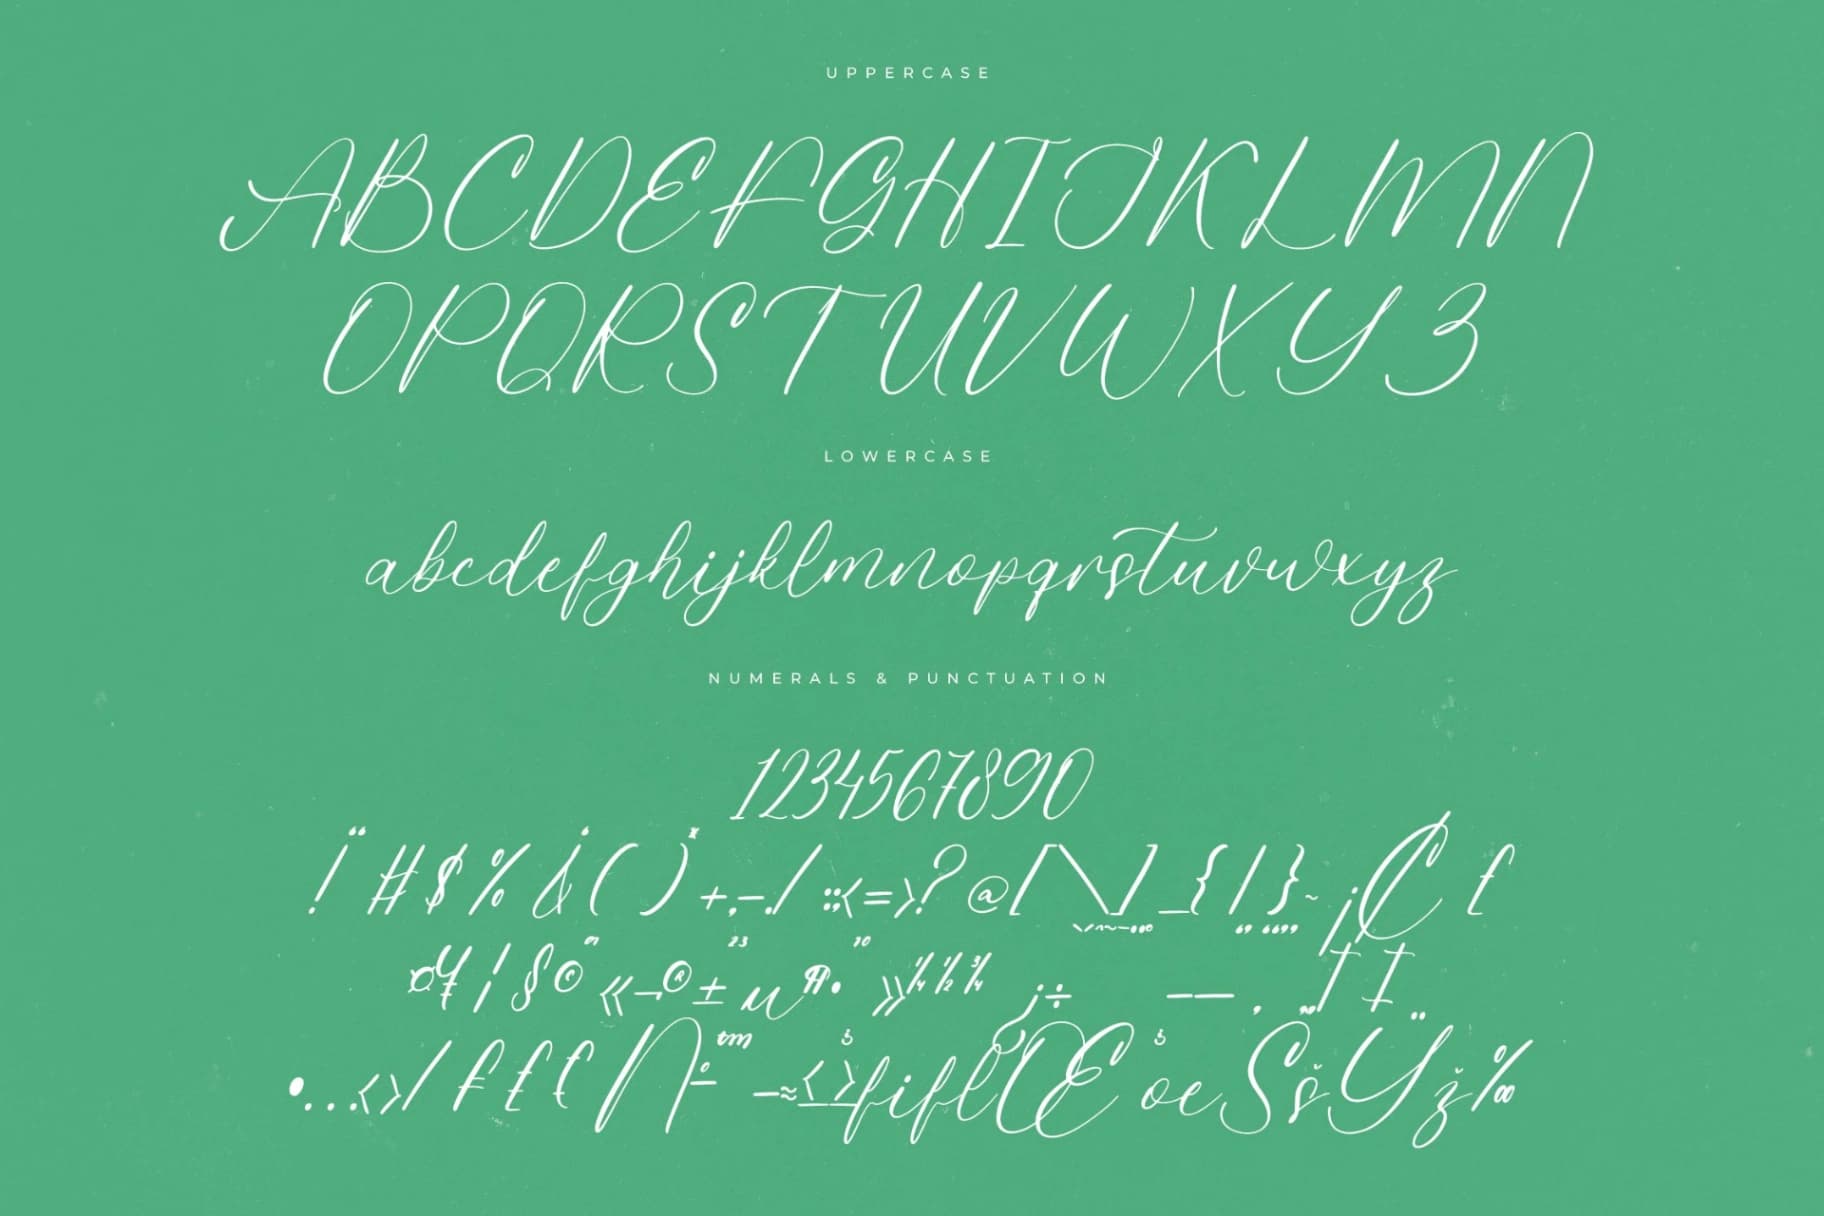 UPPERCASE
ABCDEFGHIJKLMN
OPQRSTUVWXYZ
LOWERCASE
abcdefghijklmnopqrstuvwxyz
NUMERALS & PUNCTUATION
1234567890
!"#$%&'()*+,-./:;<=>?@[\]_{|}~¡₵£
¤¥¦§©«¬®±µ¶•»¼½¾¿÷——‚„†‡
•…‹›⁄₣£€∏™÷−≈≤≥fiflŒœŠšŸž‰